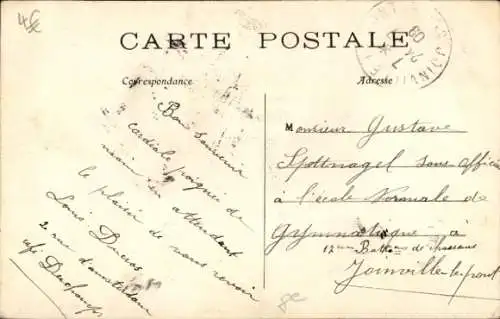 45c
CARTE POSTALE
Correspondance
Adresse
Bon Souvenir
cordiale poignée de
main en attendant
le plaisir de vous revoir
Louis
2 rue d'amsterdam
café
Monsieur Gustave
Spottnagel sous-officier
à l'école Normale de
Gymnastique à
12ème Batton de chasseurs
Joinville-le-pont